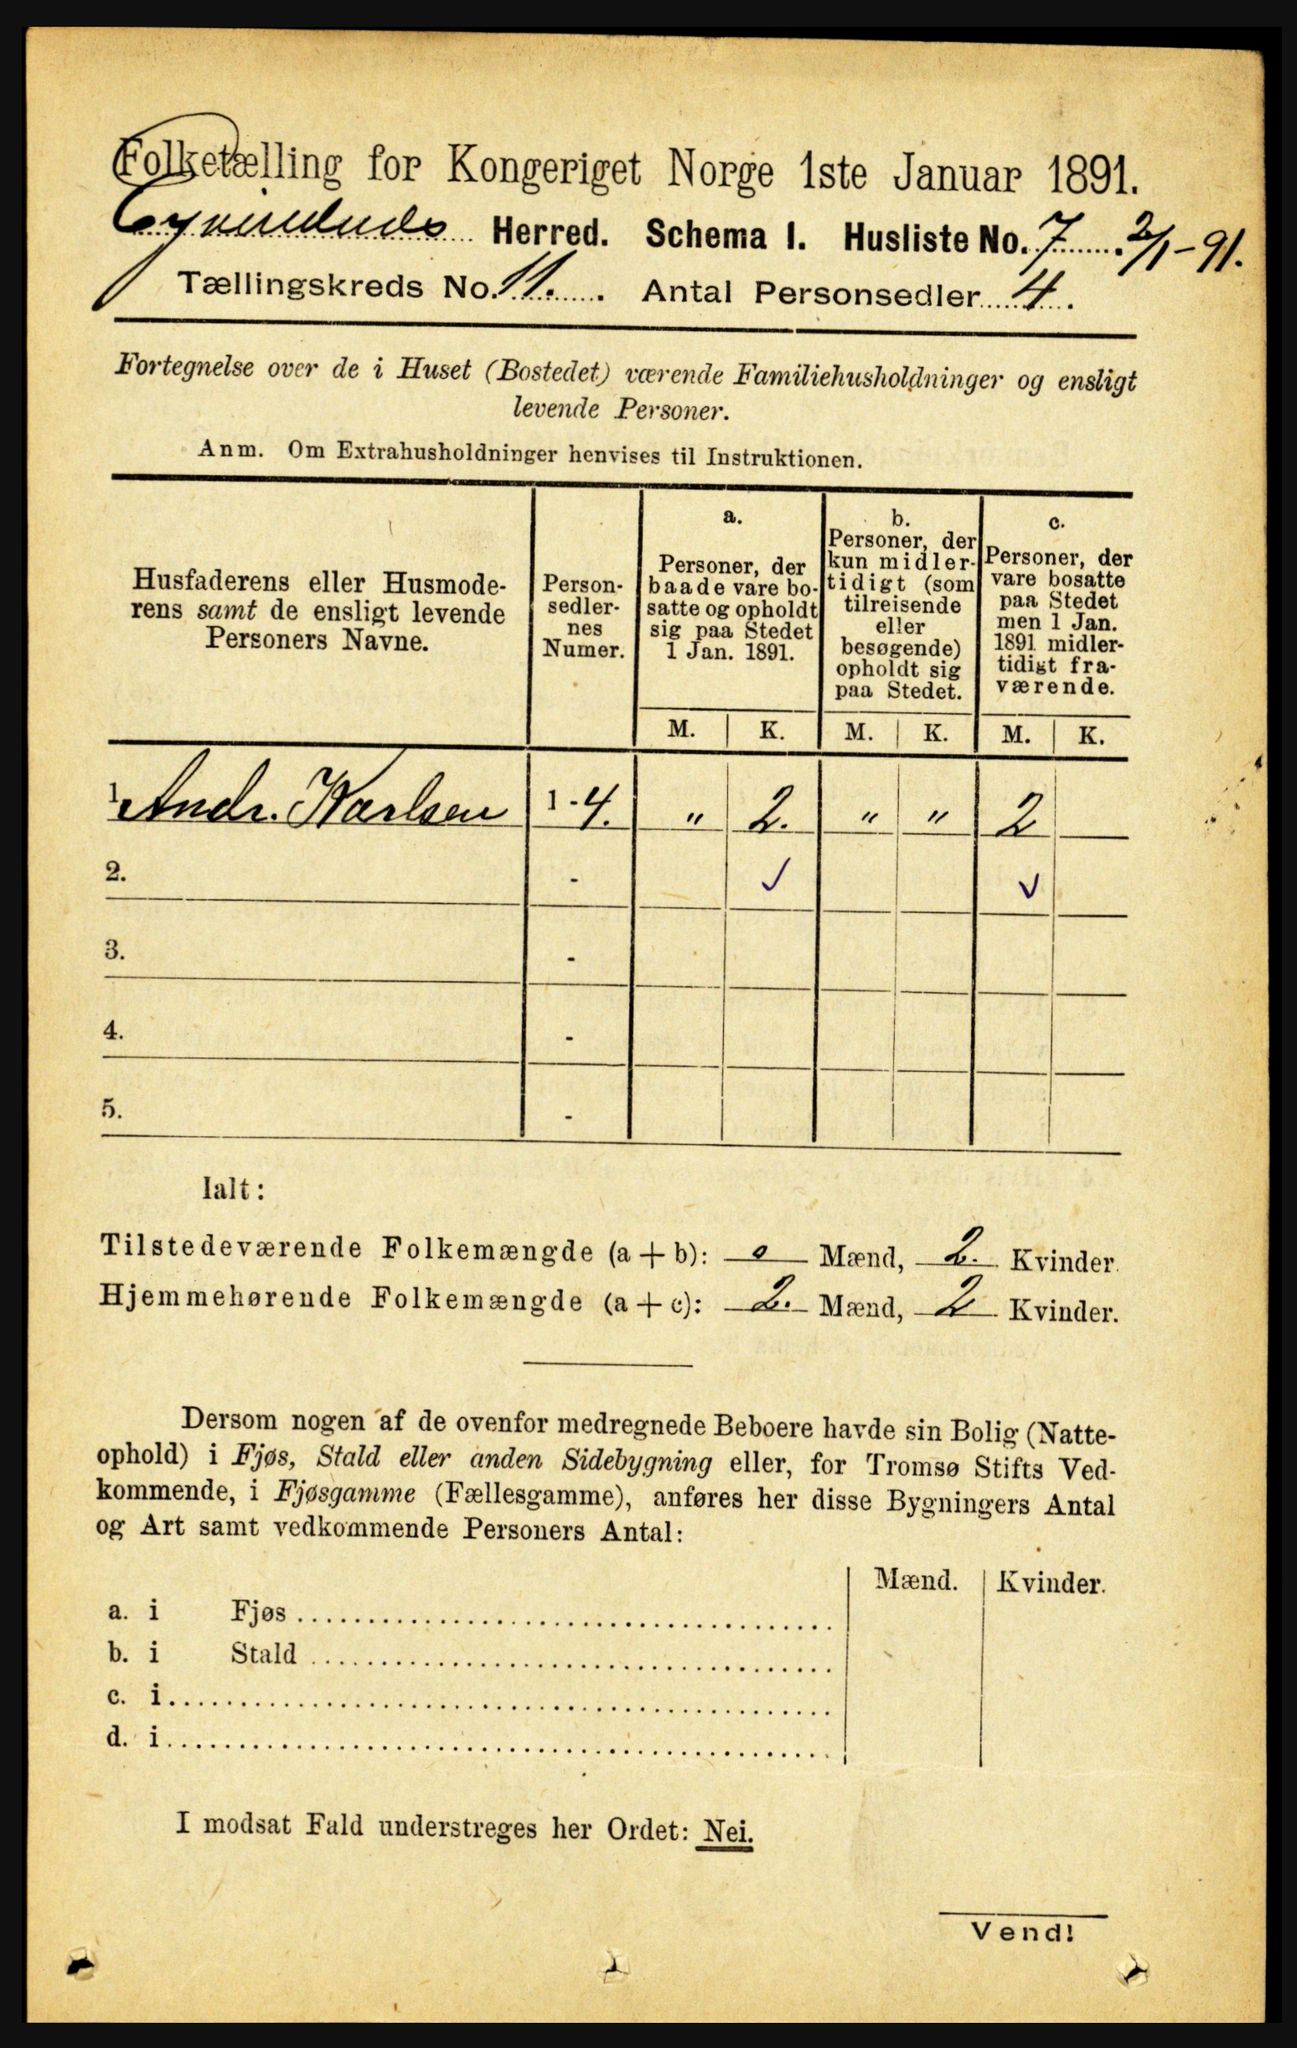 Folketælling for Kongeriget Norge 1ste Januar 1891.
Herred. Schema I. Husliste No. 7. 2/1-91.
Tællingskreds No. 11. Antal Personsedler 4.
Fortegnelse over de i Huset (Bostedet) værende Familiehusholdninger og ensligt
levende Personer.
Anm. Om Extrahusholdninger henvises til Instruktionen.
Husfaderens eller Husmode-
rens samt de ensligt levende
Personers Navne.
Person-
sedler-
nes
Numer.
a.
Personer, der
baade vare bo-
satte og opholdt
sig paa Stedet
1 Jan. 1891.
b.
Personer, der
kun midler-
tidigt (som
tilreisende
eller
besøgende)
opholdt sig
paa Stedet.
c.
Personer, der
vare bosatte
paa Stedet
men 1 Jan.
1891 midler-
tidigt fra-
værende.
M. K. M. K. M. K.
1. Andr. Karlsen 1-4. " 2. " " 2
2. - ✓ ✓
3. -
4. -
5. -
Ialt:
Tilstedeværende Folkemængde (a + b): 0 Mænd, 2. Kvinder.
Hjemmehørende Folkemængde (a + c): 2. Mænd, 2 Kvinder.
Dersom nogen af de ovenfor medregnede Beboere havde sin Bolig (Natte-
ophold) i Fjøs, Stald eller anden Sidebygning eller, for Tromsø Stifts Ved-
kommende, i Fjøsgamme (Fællesgamme), anføres her disse Bygningers Antal
og Art samt vedkommende Personers Antal:
Mænd. Kvinder.
a. i Fjøs
b. i Stald
c. i
d. i
I modsat Fald understreges her Ordet: Nei.
Vend!